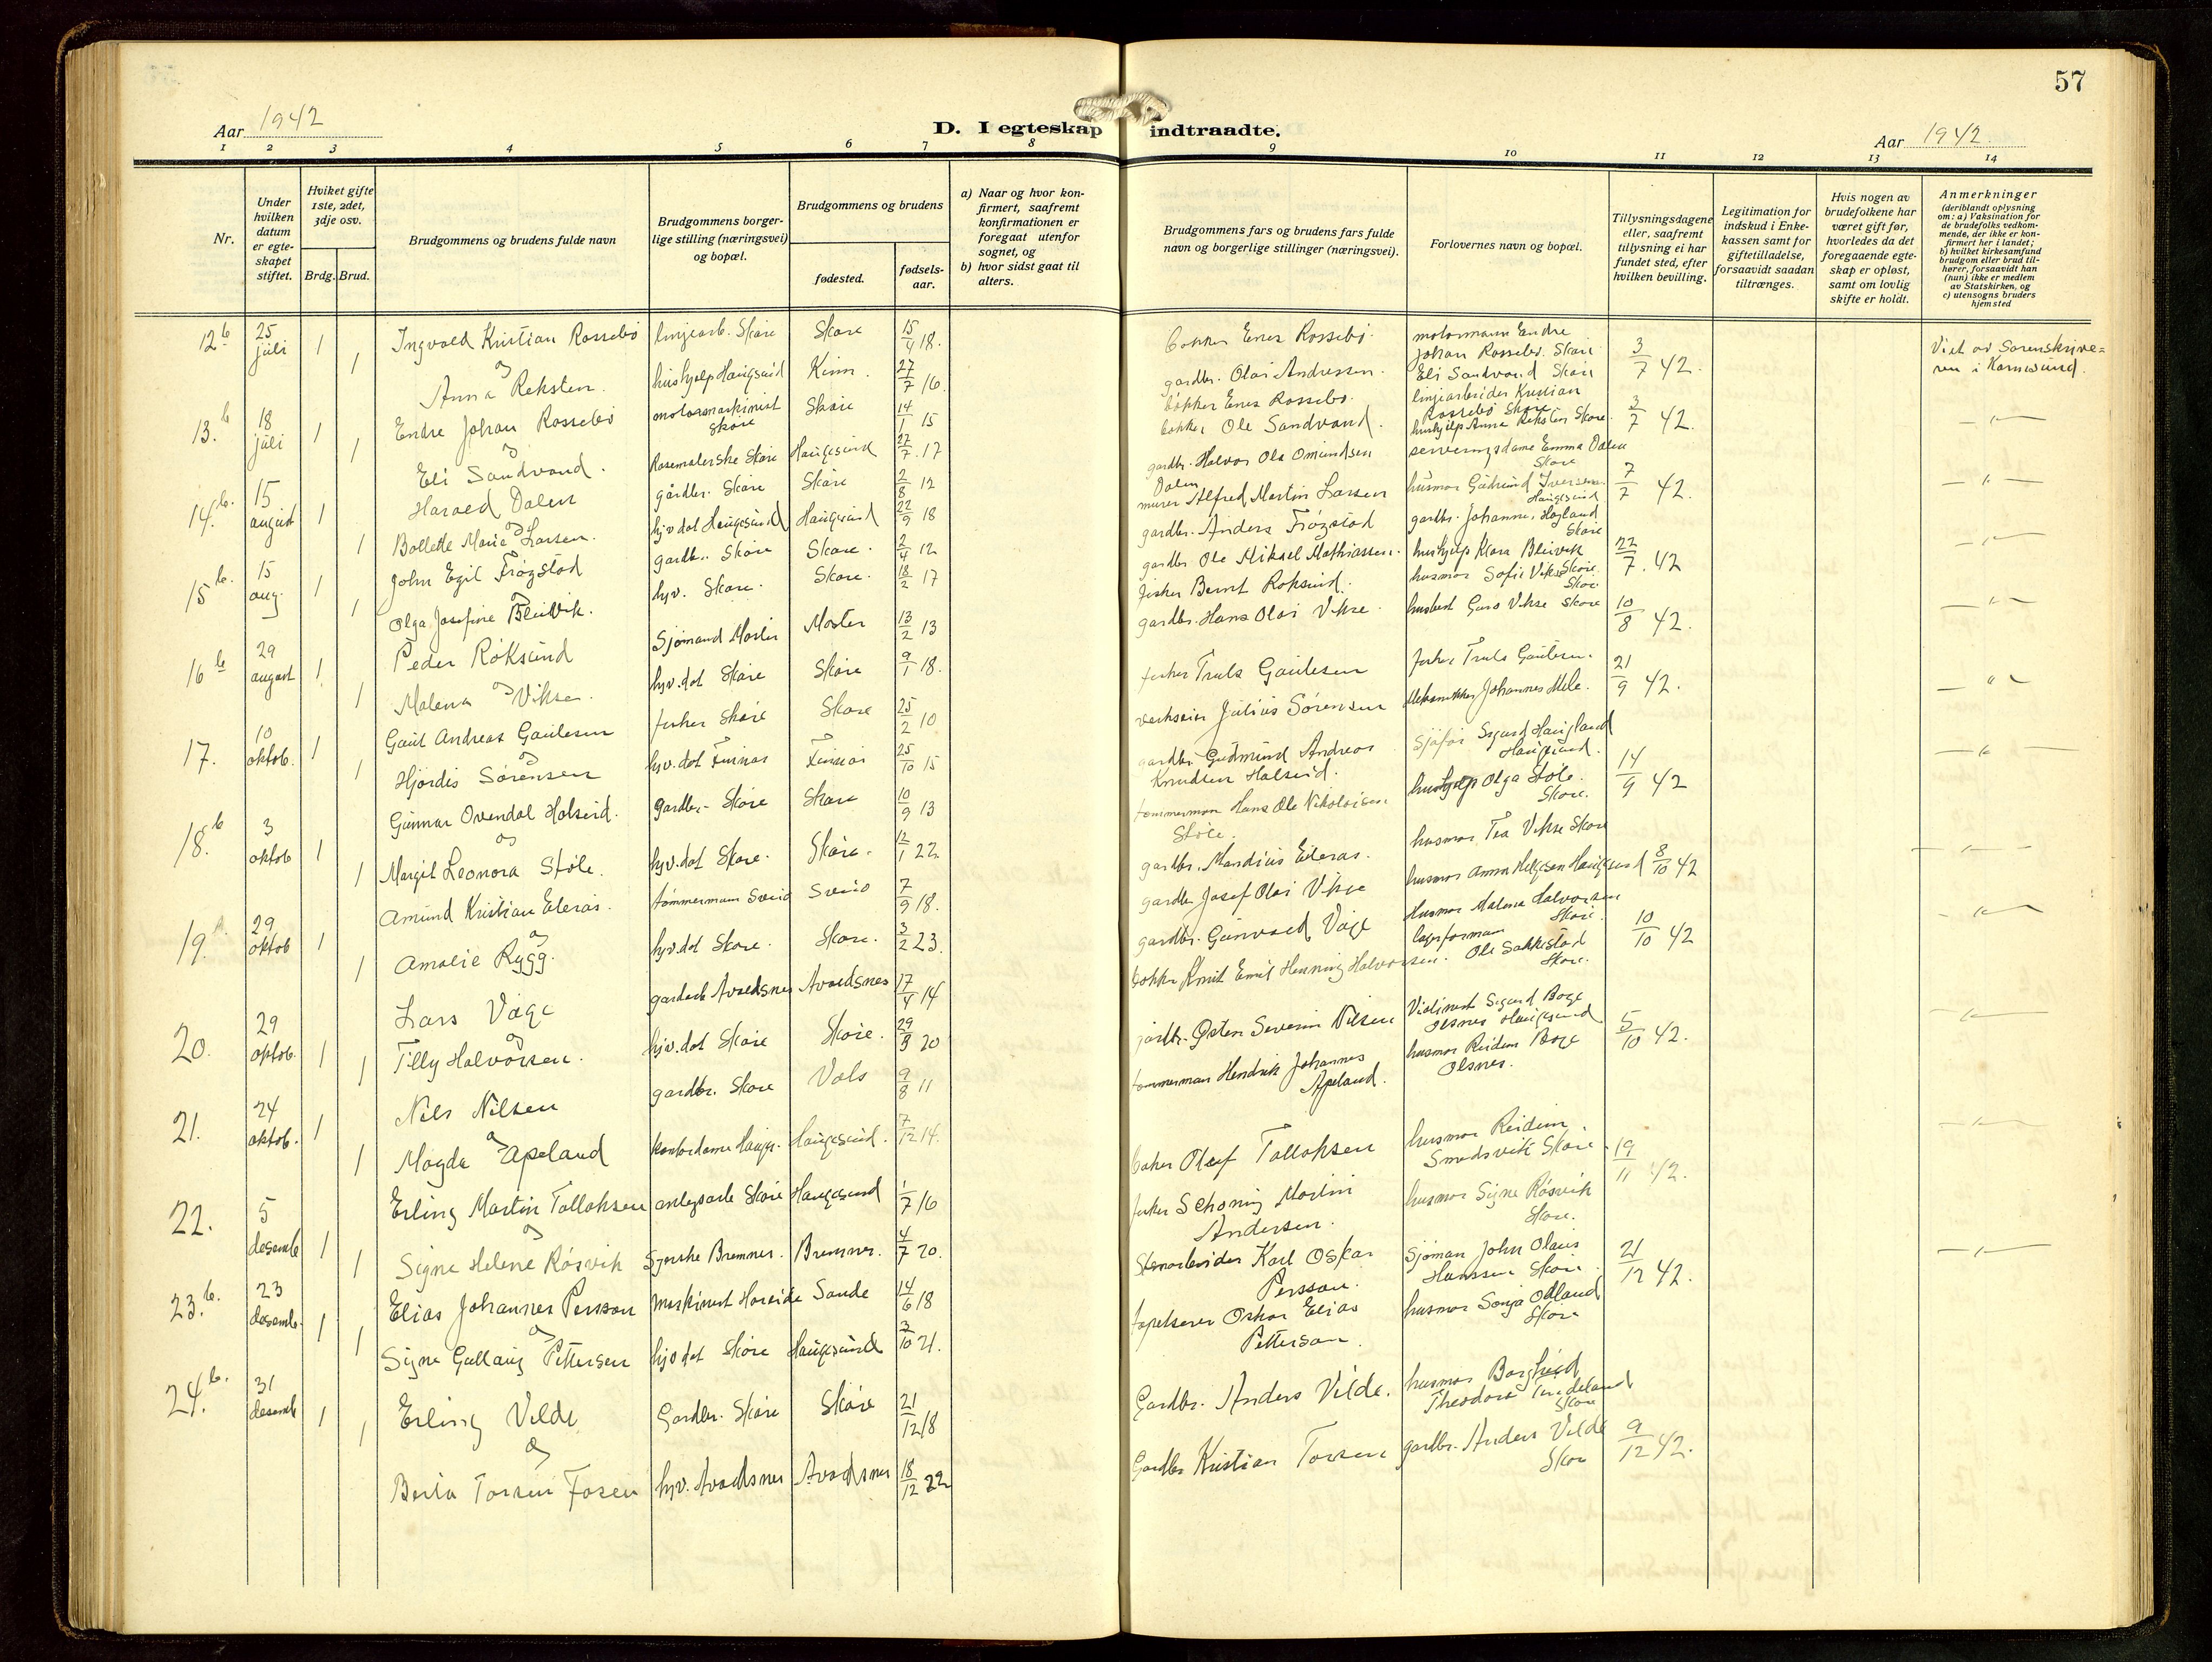 57
Aar 1942
D. I egteskap indtraadte.
Aar 1942.
1 2 3 4 5 6 7 8 9 10 11 12 13 14
Nr.
Under hvilken datum er egte-skapet stiftet.
Hviket gifte 1ste, 2det, 3dje osv.
Brdg. Brud.
Brudgommens og brudens fulde navn
Brudgommens borger-lige stilling (næringsvei) og bopæl.
Brudgommens og brudens
fødested.
fødsels-aar.
a) Naar og hvor kon-firmert, saafremt konfirmationen er foregaat utenfor sognet, og
b) hvor sidst gaat til alters.
Brudgommens fars og brudens fars fulde navn og borgerlige stillinger (næringsvei).
Forlovernes navn og bopæl.
Tillysningsdagene eller, saafremt tillysning ei har fundet sted, efter hvilken bevilling.
Legitimation for indskud i Enke-kassen samt for giftetilladelse, forsaavidt saadan tiltrænges.
Hvis nogen av brudefolkene har været gift før, hvorledes da det foregaaende egte-skap er opløst, samt om lovlig skifte er holdt.
Anmerkninger
(deriblandt oplysning om: a) Vaksination for de brudefolks vedkom-mende, der ikke er kon-firmert her i landet; b) hvilket kirkesamfund brudgom eller brud til-hører, forsaavidt han (hun) ikke er medlem av Statskirken, og c) utensogns bruders hjemsted
12 b 25 juli 1 Ingvald Kristian Rossebø linjearb. Skåre Skåre 15/4 18. bøkker Enes Rossebø motormann Endre Johan Rossebø Skåre 3/7 42. Viet av Sorenskrive=ren i Karmsund.
og
1 Anna Reksten. hushjelp Haugesund Kinn. 27/7 16 gardbr. Olai Andressen. Eli Sandvand Skåre
13. b 18 juli 1 Endre Johan Rossebø motormaskinist Skåre Skåre 14/1 15 bøkker Enes Rossebø. linjearbeider Kristian Rossebø Skåre 3/7 42. — " —
og
1 Eli Sandvand. Rosemalerske Skåre Haugesund 27/7. 17 bøkker Ole Sandvand. hushjelp Anna Reksten Skåre.
14. b. 15 august 1 Harald Dalen gårdbr. Skåre Skåre 2/8 12 gardbr. Halvor Ola Omundsen Dalen serveringsdame Emma Dalen Skåre 7/7 42. — " —
og
1 Bollette Marie Larsen. hjv. dat Haugesund Haugesund 22/9 18 murer Alfred Martin Larsen husmor Gudrund Iversen Haugesund
15 b. 15 aug. 1 John Egil Frøgstad gardb.. Skåre Skåre. 2/4 12 gardbr. Anders Frøgstad gardbr. Johannes Hagland Skåre 22/7. 42 — " —
og
1 Olga Josefine Bleivik. hjv. Skåre. Skåre. 18/2 17 gardbr Ole Mikael Mathiassen. hushjelp Klara Bleivik Skåre.
16 b 29 august 1 Peder Røksund Sjømand Moster Moster 13/2 13 fisker Bernt Røksund. husmor Sofie Vikse Skåre 10/8 42. — " —
og
1 Malena Vikse. hjv. dat Skåre Skåre 9/1 18. gardbr. Hans Olai Vikse. husbest Guro Vikse Skåre
17. 10 oktob. 1 Gaut Andreas Gautesen fisker Skåre Skåre 25/2 10 fisker Truls Gautesen fisker Truls Gautesen. 21/9 42. — " —
og
1 Hjørdis Sørensen hjv. dat 25/10 15 verkseier Julius Sørensen Johannes Mele.
18. b 3 oktob 1 Gunnar Ovendal Halseid. gardbr. Skåre Skåre 10/9 13 gardbr. Gudmund Andreas Knudsen Halseid. Sjåfør Sigurd Haugland Haugesund. 14/9 42 — " —
og
1 Margit Leonora Støle. hjv. dat Skåre. Skåre. 12/1 22 tømmerman Hans Ole Nikolaisen Støle. hushjelp Olga Støle. Skåre.
19. 29 oktob 1 Amund Kristian Eleras. tømmermann Sveio Sveio 7/9 18. gardbr. Mandius Eileras. husmor Tea Vikse Skåre 8/10 42 — " —
og
1 Amalie Rygg. hjv. dat Skåre. Skåre. 3/2 23. gardbr Josef Olai Vikse husmor Anna Helgesen Haugesund
20. 29 oktob. 1 Lars Våge gardarb Avaldsnes Avaldsnes 17/4 14 gardbr. Gunvald Våge Husmor Malena Halvorsen Skåre. 10/10 42 — " —
og
1 Tilly Halvorsen. hjv. dat Skåre Skåre. 29/9 20 bøkker Knut Emil Henning Halvorsen. lagerforman Ole Sakkestad Skåre.
21. 24 oktob. 1 Nils Nilsen gardbr. Skåre Vats 9/8 11 gardbr. Østen Severin Nilsen Violinist Sigurd Bøge Olsnes Haugesund 5/10 42. — " —
og
1 Magda Apeland kontordame Hauges. Haugesund. 7/12 14. tømmerman Hendrik Johannes Apeland. husmor Reidun Bøge Olsnes.
22. 5 desemb 1 Erling Martin Tollaksen anlegsarb Skåre Haugesund 1/7 16 baker Olaf Tollaksen husmor Reidun Smedsvik Skåre. 19/11 42. — " —
og
1 Signe Helene Røsvik Syerske Bremnes. Bremnes. 4/7 20. fisker Schøning Martin Andersen. husmor Signe Røsvik Skåre.
23. b. 23 desemb. 1 Elias Johannes Persson Maskinist Hareide Sande 14/6 18 Stenarbeider Karl Oskar Persson. Sjøman John Olaus Hanssen Skåre 21/12 42. — " —
og
1 Signe Gullaug Pettersen hjv dat Skåre Haugesund 3/10 21. tapetserer Oskar Elias Petterson. husmor Sonja Odland Skåre
24. b. 31 desemb 1 Erling Velde Gardbr. Skåre Skåre 21/12 18 Gardbr. Anders Velde. husmor Borghild Theodora Skåre 9/12 42.
og
1 Berta Torsen Fosen hjv. Avaldsnes Avaldsnes 18/12 22 Gardbr Kristian Torsen gardbr. Anders Velde Skåre